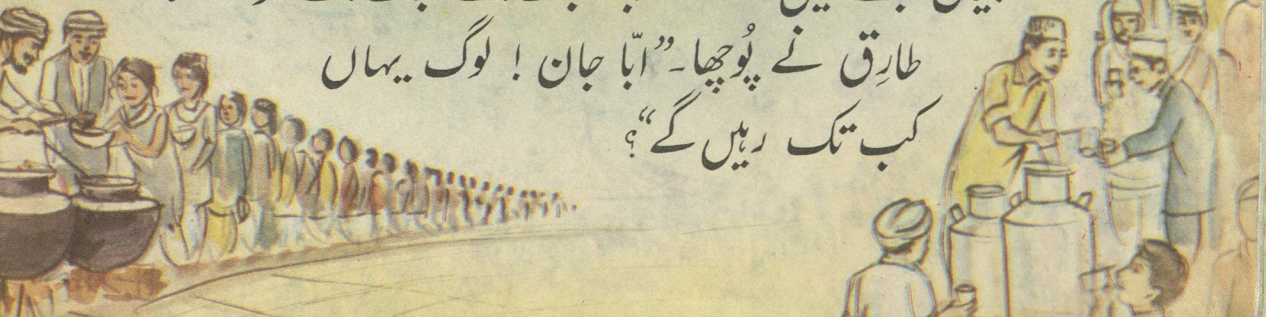 طارِق نے پُوچھا۔ ”ابّا جان ! لوگ یہاں
کب تک رہیں گے“؟